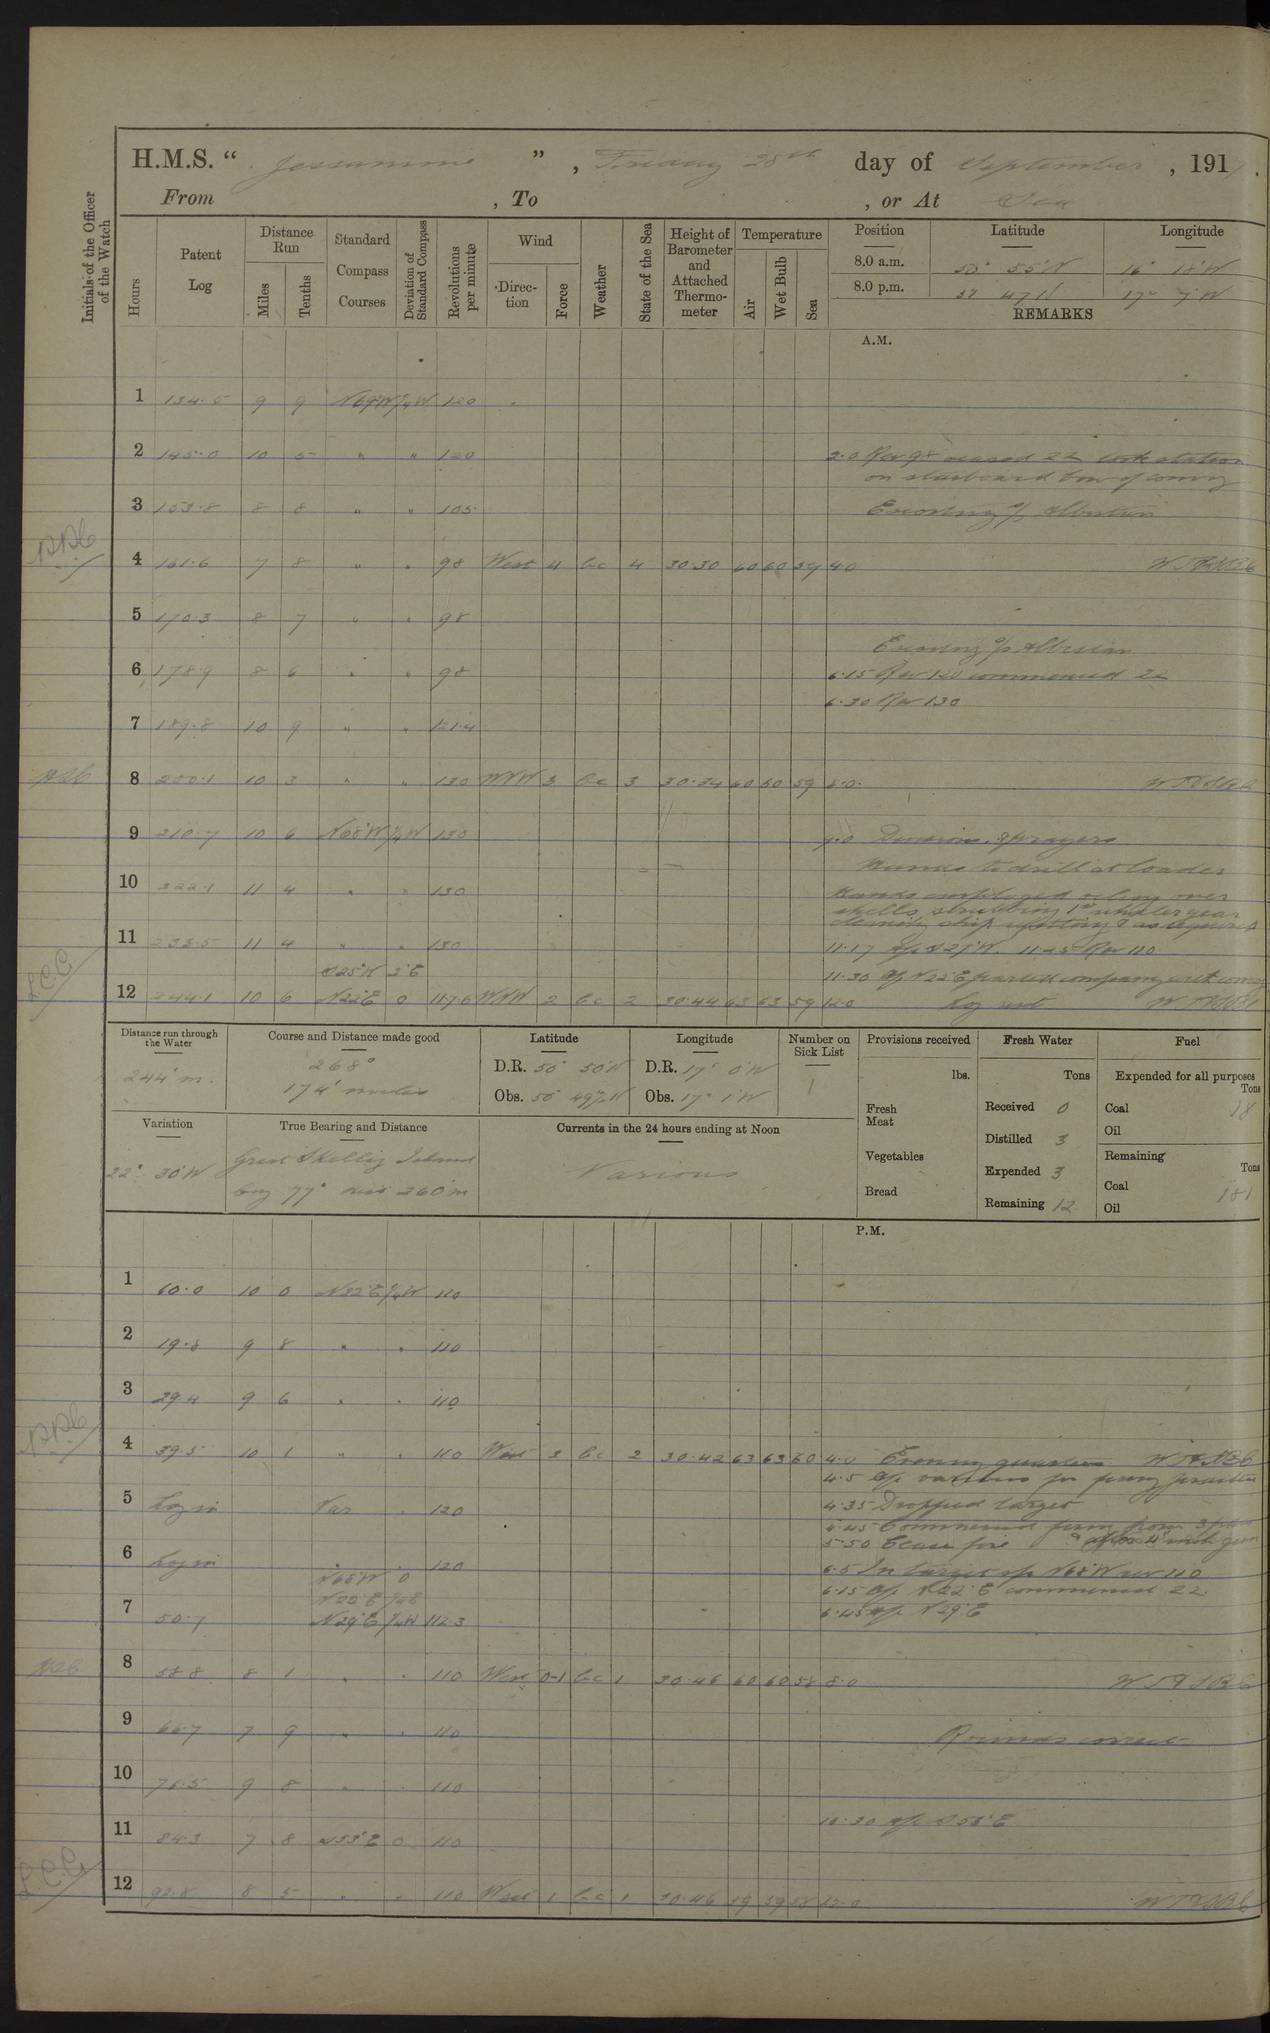 H.M.S. “ Jessamine ” , Friday 28th day of September , 1917.
From , To , or At Sea
Initials of the Officer of the Watch
Hours
Patent Log
Distance Run
Miles
Tenths
Standard Compass Courses
Deviation of Standard Compass
Revolutions per minute
Wind
Direc-tion
Force
Weather
State of the Sea
Height of Barometer and Attached Thermo-meter
Temperature
Air
Wet Bulb
Sea
Position Latitude Longitude
8.0 a.m. 50° 55'N 16° 18'W
8.0 p.m. 51 47 N 17° 7'W
REMARKS
A.M.
1 134.5 9 9 N69°W ¼W 120
2 145.0 10 5 " " 120 2.0 Rev 98 ceased 22 took station
on starboard bow of convoy
3 153.8 8 8 " " 105 Escorting S/S
4 161.6 7 8 " " 98 West 4 bc 4 30.30 60 60 59 4.0
5 170.3 8 7 " " 98
Escorting S/S
6 178.9 8 6 " " 98 6.15 Rev 120 commenced 22
6.30 Rev 130
7 189.8 10 9 " " 121.4
8 200.1 10 3 " " 130 WNW 3 bc 3 30.34 60 60 59 8.0
9 210.7 10 6 N68°W ¼W 130 9.0 Divisions, & prayers
Hands to drill at loader
10 222.1 11 4 " " 130 Hands employed
shells, scrubbing 1st whaler gear
cleaning ship & as requisite
11 233.5 11 4 " " 130 11.17 A/c S27°W. 11.25 Rev 110
S25°W 2°E 11.30 A/c N22°E parted company with convoy
12 244.1 10 6 N22°E 0 117.6 WNW 2 bc 2 30.44 63 63 59 12.0 Log reset
Distance run through the Water
244' m.
Course and Distance made good
268°
174' miles
Latitude
D.R. 50° 50'N
Obs. 50° 49½'N
Longitude
D.R. 17° 0'W
Obs. 17° 1'W
Number on Sick List
1
Provisions received
lbs.
Fresh Meat
Vegetables
Bread
Fresh Water
Tons
Received 0
Distilled 3
Expended 3
Remaining 12
Fuel
Expended for all purposes
Tons
Coal 18
Oil
Remaining
Tons
Coal 181
Oil
Variation
22° 30'W
True Bearing and Distance
Great Skellig Island
brg 77° dist 260'm
Currents in the 24 hours ending at Noon
Various
P.M.
1 10 0 N22°E ¼W 110
2 19.8 9 8 " " 110
3 29.4 9 6 " " 110
4 39.5 10 1 " " 110 West 3 bc 2 30.42 63 63 60 4.0 Evening quarters
4.5 A/c various for firing practice
5 Log in Var 120 4.35 Dropped target
4.45 Commenced firing from
5.50 Cease fire
6 Log in " 120 6.5 In target A/c N68°W rev 110
N68°W 0 6.15 A/c N22°E commenced 22
N22°E ¼E
7 50.7 N29°E ¼W 112.3 6.45 A/c N29°E
8 58.8 8 1 " " 110 West 0-1 bc 1 30.46 60 60 58 8.0
9 66.7 7 9 " " 110 Rounds correct
10 76.5 9 8 " " 110
10.30 A/c S58°E
11 84.3 7 8 0 110
12 92.8 8 5 " " 110 West 1 bc 1 30.46 59 59 58 12.0